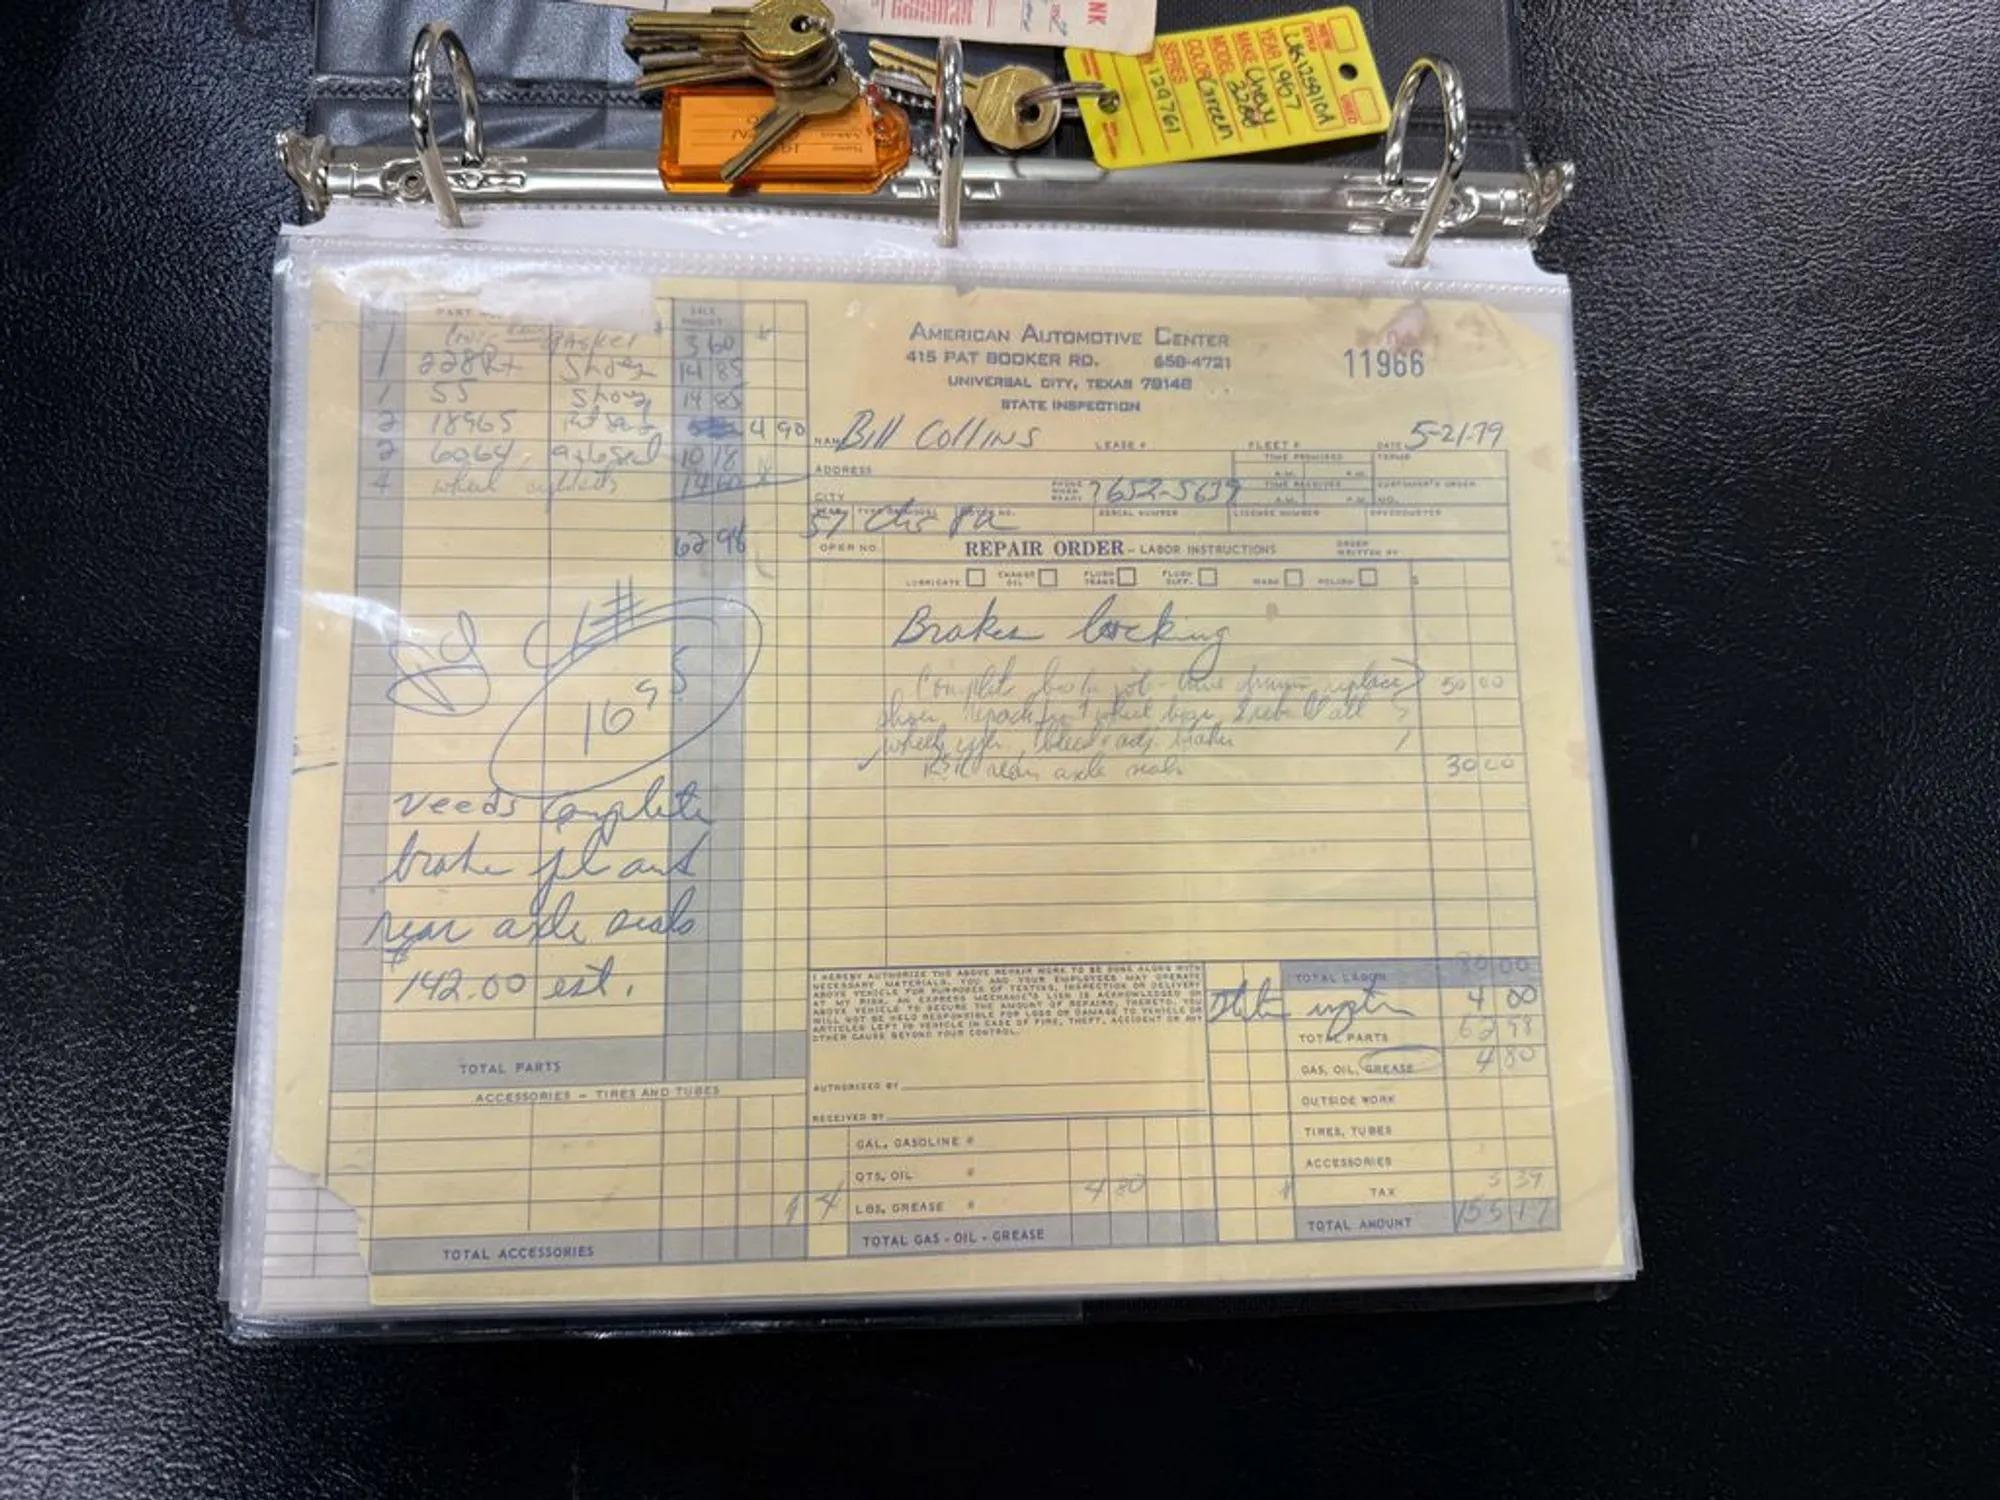 NK
YEAR 1967
MAKE Chevy
MODEL
COLOR Green
SERIES
124761
USED
Name
PART
SALE
AMOUNT
1 Gasket 3 60
1 228R+ Shoes 14 85
1 55 Shoes 14 85
2 18965 4 90
2 6064 axle seal 10 18
4 wheel 14 60
62 98
1#
16 95
needs complete
brake jl and
rear axle seals
$142.00 est.
TOTAL PARTS
ACCESSORIES - TIRES AND TUBES
TOTAL ACCESSORIES
AMERICAN AUTOMOTIVE CENTER
415 PAT BOOKER RD. 658-4721
UNIVERSAL CITY, TEXAS 78148
STATE INSPECTION
11966
NAME Bill Collins LEASE # FLEET # DATE 5-21-79
ADDRESS TIME PROMISED TERMS
A.M. P.M.
CITY PHONE WHEN READY 652-5639 TIME RECEIVED CUSTOMER'S ORDER NO.
A.M. P.M.
57 SERIAL NUMBER LICENSE NUMBER SPEEDOMETER
OPER NO. REPAIR ORDER - LABOR INSTRUCTIONS ORDER WRITTEN BY
LUBRICATE CHANGE OIL FLUSH TRANS. FLUSH DIFF. WASH POLISH $
Brakes locking
Complete job - drums replace 50 00
shoes, repack front wheel & rebuild all
wheel cyl. bleed & adj. brakes
R&R rear axle seals 30 00
I HEREBY AUTHORIZE THE ABOVE REPAIR WORK TO BE DONE ALONG WITH
NECESSARY MATERIALS. YOU AND YOUR EMPLOYEES MAY OPERATE
ABOVE VEHICLE FOR PURPOSES OF TESTING, INSPECTION OR DELIVERY
AT MY RISK. AN EXPRESS MECHANIC'S LIEN IS ACKNOWLEDGED ON
ABOVE VEHICLE TO SECURE THE AMOUNT OF REPAIRS THERETO. YOU
WILL NOT BE HELD RESPONSIBLE FOR LOSS OR DAMAGE TO VEHICLE OR
ARTICLES LEFT IN VEHICLE IN CASE OF FIRE, THEFT, ACCIDENT OR ANY
OTHER CAUSE BEYOND YOUR CONTROL.
AUTHORIZED BY
RECEIVED BY
TOTAL LABOR 80 00
4 00
TOTAL PARTS 62 98
GAS, OIL, GREASE 4 80
OUTSIDE WORK
TIRES, TUBES
ACCESSORIES
TAX 3 39
TOTAL AMOUNT 155 17
GAL. GASOLINE @
QTS. OIL @
4 LBS. GREASE @ 4 80
TOTAL GAS - OIL - GREASE